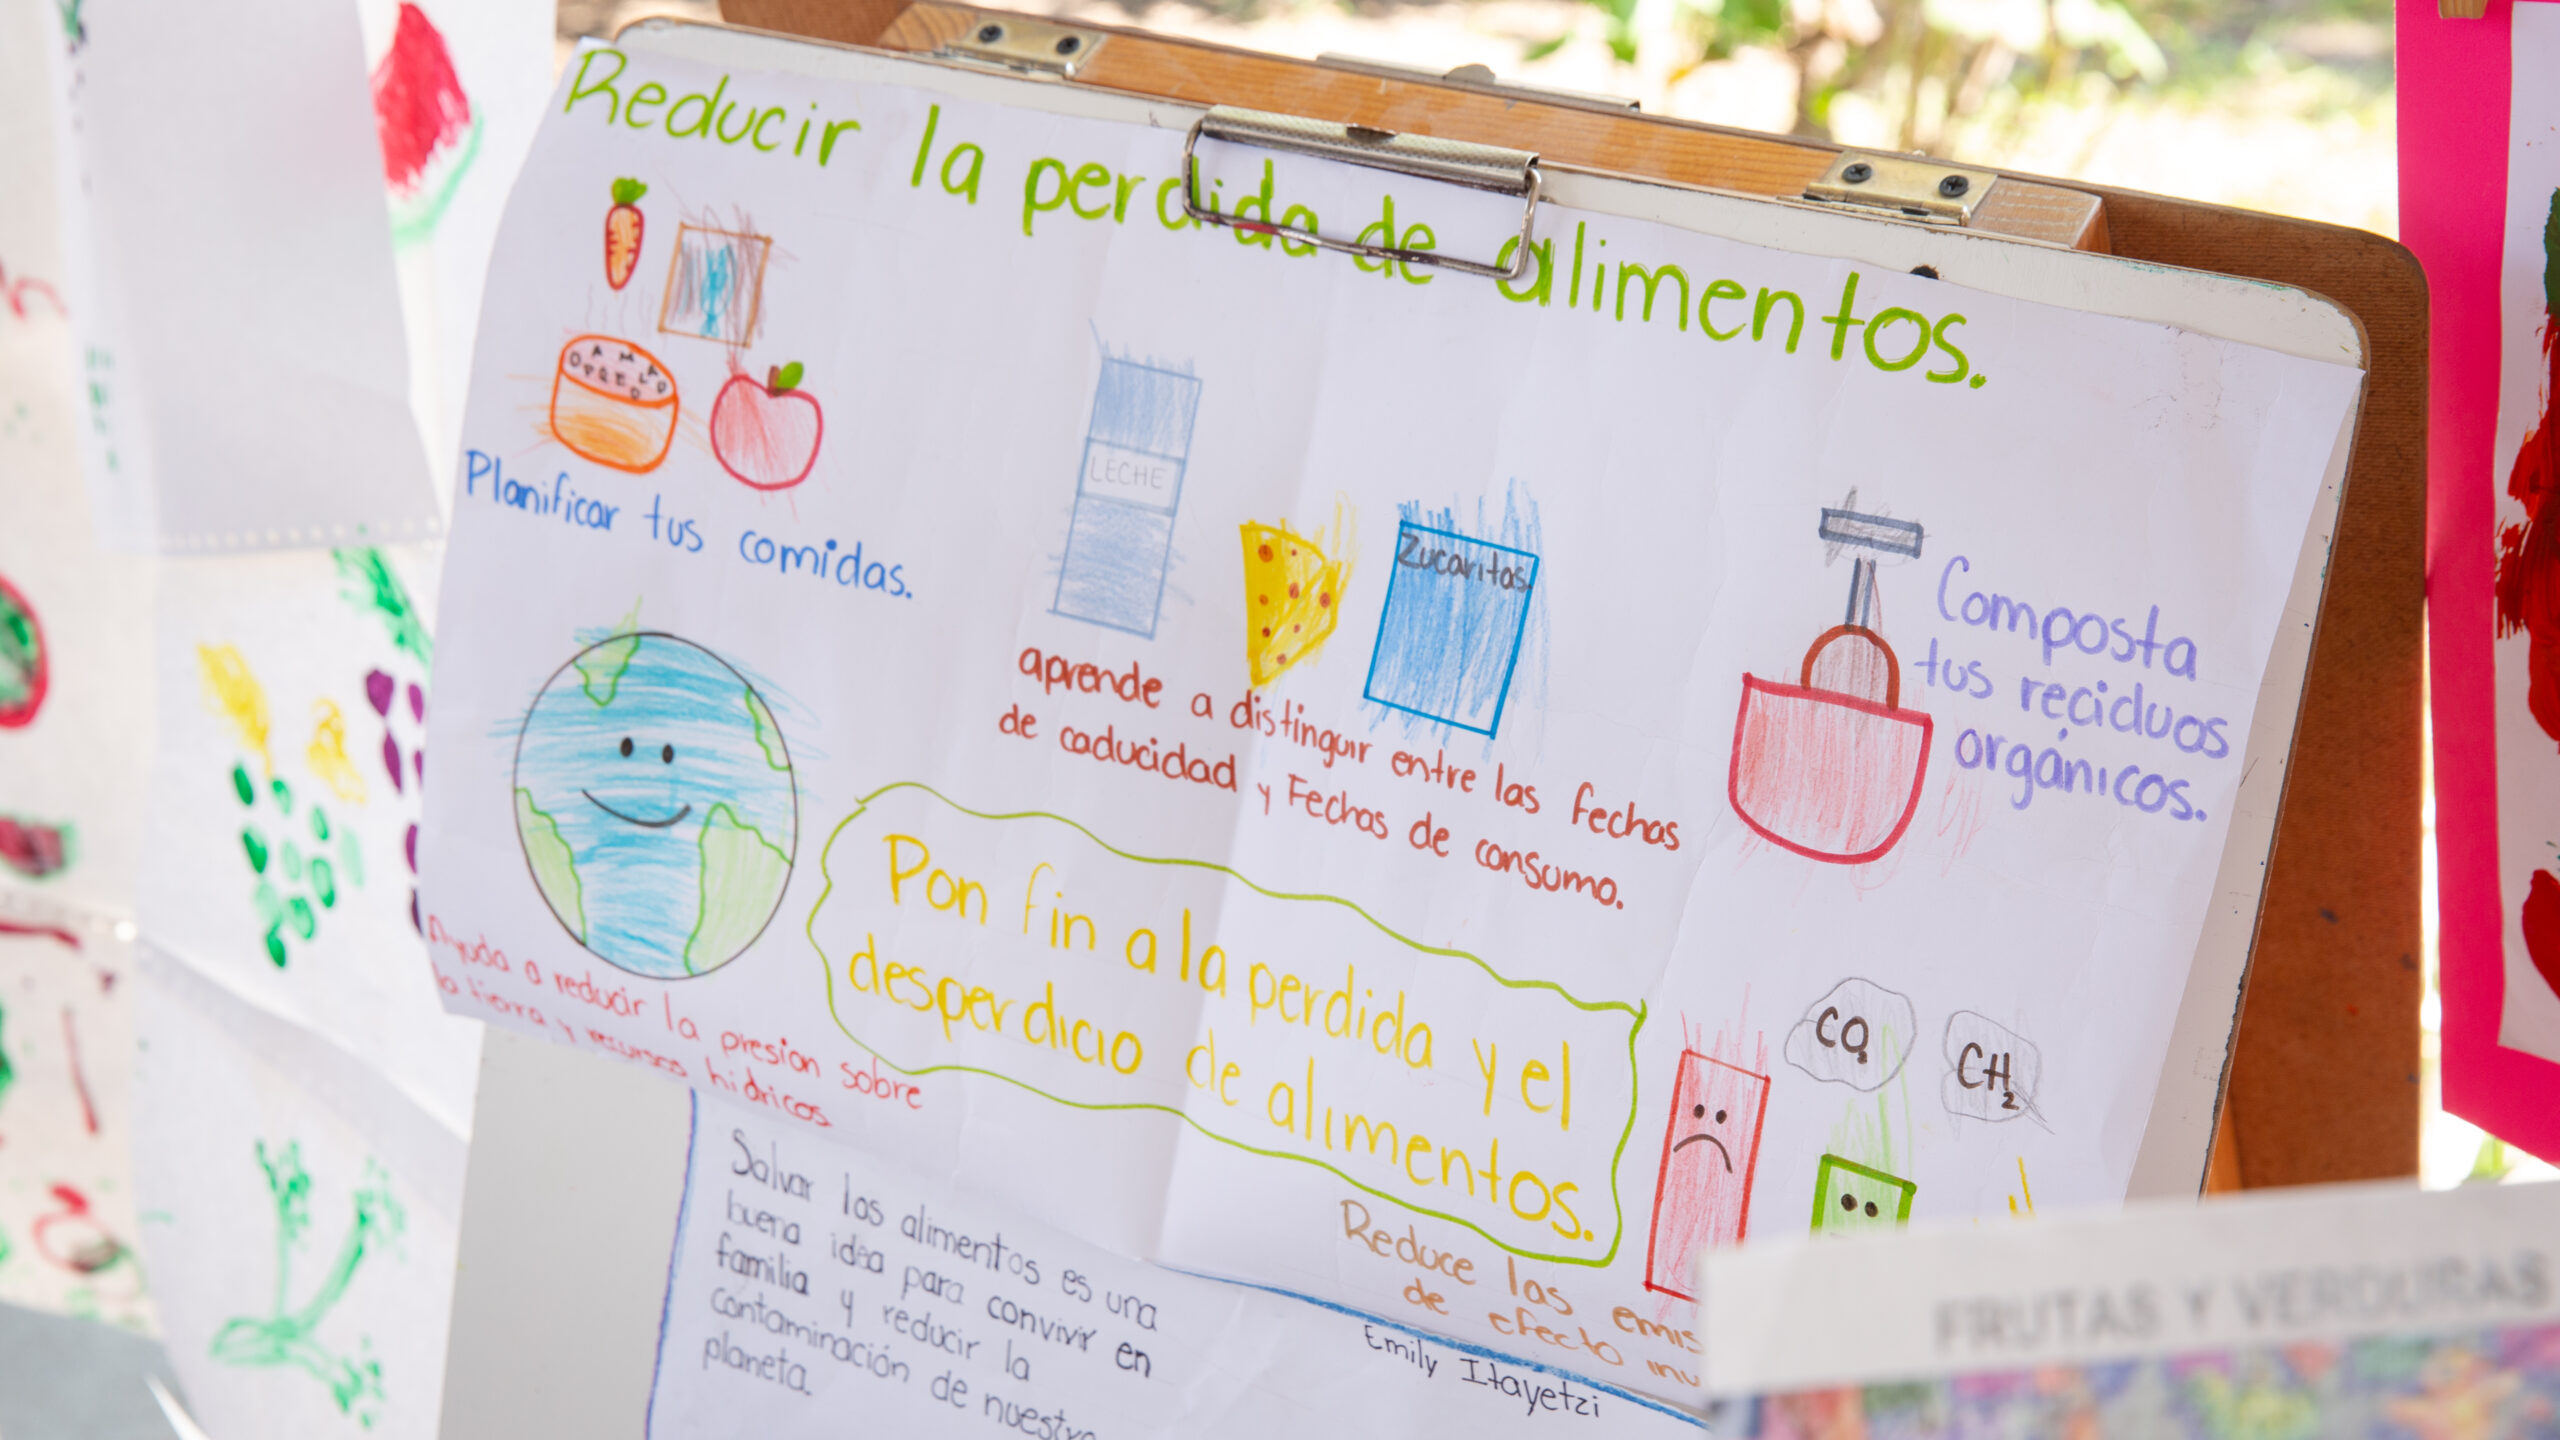 Reducir la perdida de alimentos.
Planificar tus comidas.
LECHE
Zucaritas
aprende a distinguir entre las fechas
de caducidad y Fechas de consumo.
Composta
tus reciduos
orgánicos.
Ayuda a reducir la presion sobre
la tierra y recursos hidricos
Pon fin a la perdida y el
desperdicio de alimentos.
CO2
CH2
Reduce las emis
de efecto inv
Emily Itayetzi
Salvar los alimentos es una
buena idea para convivir en
familia y reducir la
contaminación de nuestro
planeta.
FRUTAS Y VERDURAS